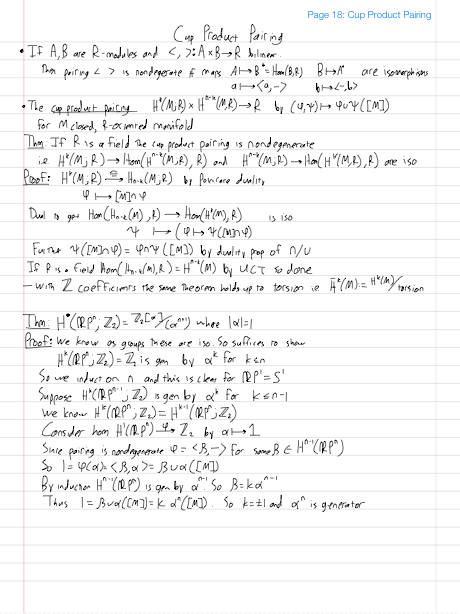 Page 18: Cup Product Pairing
Cup Product Pairing
• If A,B are R-modules and < , >: A×B→R bilinear.
Then pairing < > is nondegenerate if maps A→B*=Hom(B,R) B→A* are isomorphisms
a↦<a,-> b↦<-,b>
• The cup product pairing Hᵏ(M;R) × Hⁿ⁻ᵏ(M;R)→R by (φ,ψ)↦φ∪ψ([M])
for M closed, R-oriented manifold
Thm: If R is a field the cup product pairing is nondegenerate
i.e. Hᵏ(M;R)→Hom(Hⁿ⁻ᵏ(M;R), R) and Hⁿ⁻ᵏ(M;R)→Hom(Hᵏ(M;R),R) are iso
Proof: Hᵏ(M;R) ≅→ Hₙ₋ₖ(M,R) by Poincare duality
φ ↦ [M]∩φ
Dual to get Hom(Hₙ₋ₖ(M),R)→Hom(Hᵏ(M),R) is iso
ψ ↦ (φ↦ψ([M]∩φ)
Further ψ([M]∩φ) = φ∩ψ([M]) by duality prop of ∩/∪
If R is a field Hom(Hₙ₋ₖ(M),R)=Hⁿ⁻ᵏ(M) by UCT so done
- with ℤ coefficients the same theorem holds up to torsion ie H̄ᵏ(M):= Hᵏ(M)/torsion
Thm: H*(ℝPⁿ; ℤ₂) = ℤ₂[α]/(αⁿ⁺¹) where |α|=1
Proof: We know as groups these are iso. So suffices to show
Hᵏ(ℝPⁿ; ℤ₂)=ℤ₂ is gen by αᵏ for k≤n
So we induct on n and this is clear for ℝP¹=S¹
Suppose Hᵏ(ℝPⁿ⁻¹; ℤ₂) is gen by αᵏ for k≤n-1
We know Hᵏ(ℝPⁿ; ℤ₂)= Hᵏ⁻¹(ℝPⁿ; ℤ₂)
Consider hom H¹(ℝPⁿ) φ→ ℤ₂ by α↦1
Since pairing is nondegenerate φ=<β,-> for some β∈Hⁿ⁻¹(ℝPⁿ)
So 1=φ(α)=<β,α>=β∪α([M])
By induction Hⁿ⁻¹(ℝPⁿ) is gen by αⁿ⁻¹. So β=kαⁿ⁻¹
Thus 1=β∪α([M])=k αⁿ([M]). So k=±1 and αⁿ is generator